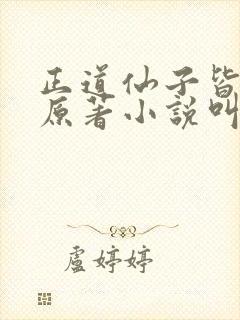 正道仙子皆
原著小說叫
盧婷婷